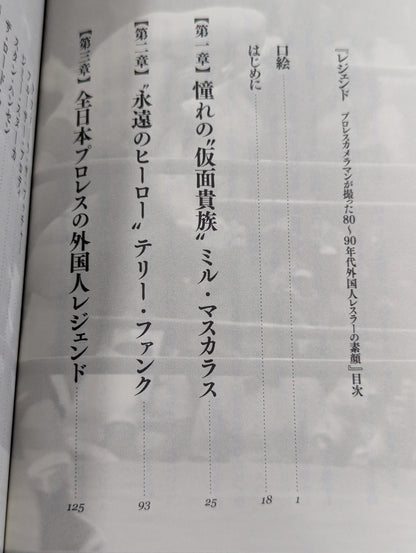 『レジェンド　プロレスカメラマンが撮った80〜90年代外国人レスラーの素顔』目次
口絵 1
はじめに 18
【第一章】憧れの“仮面貴族”ミル・マスカラス 25
【第二章】“永遠のヒーロー”テリー・ファンク 93
【第三章】全日本プロレスの外国人レジェンド 125